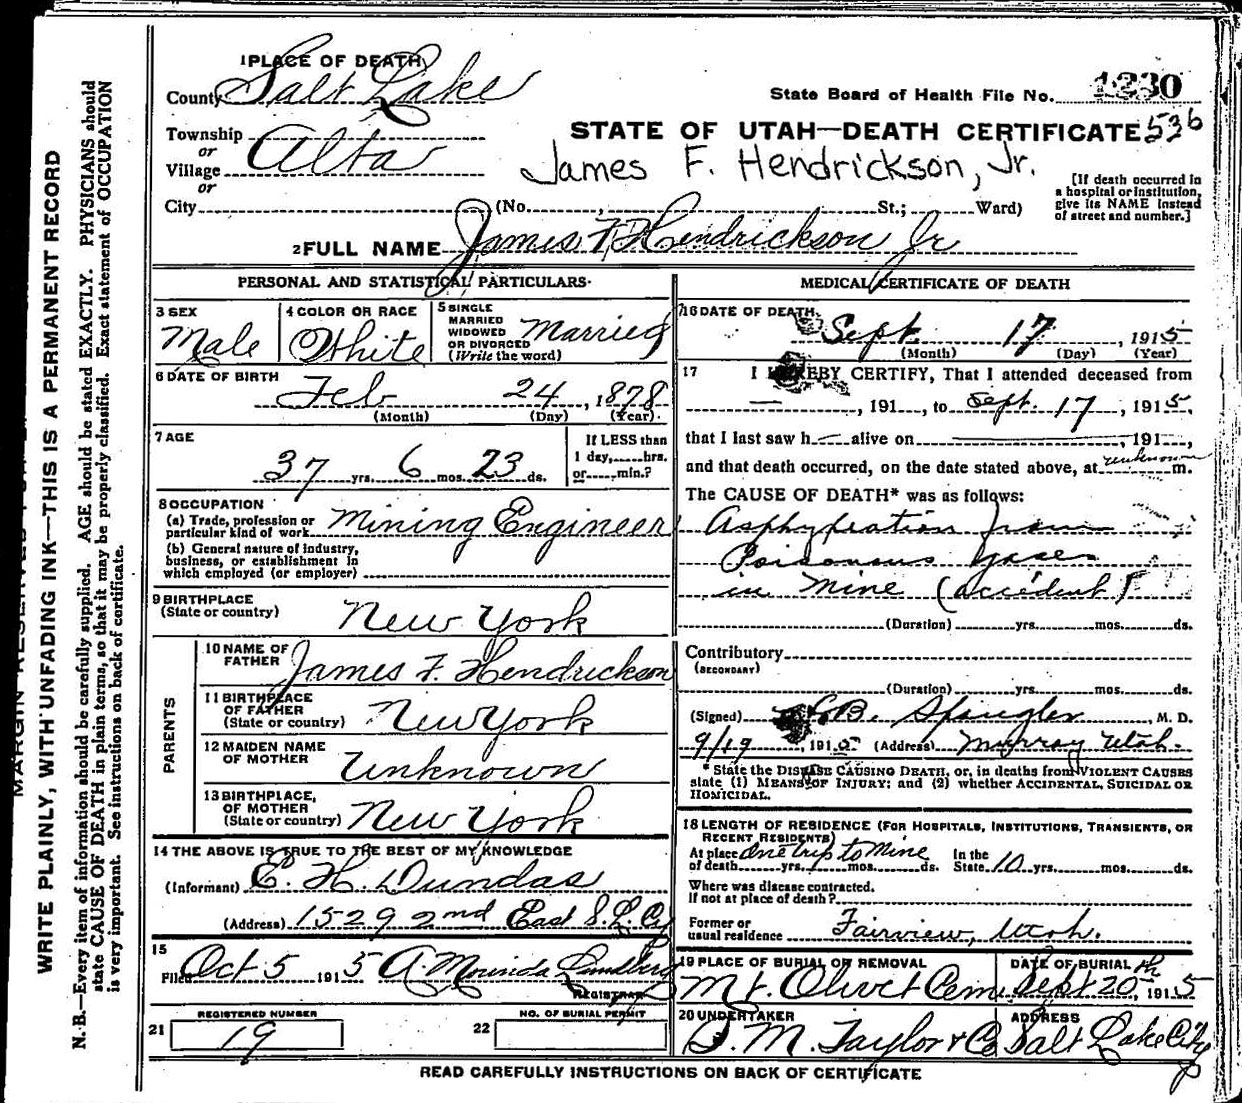 1 PLACE OF DEATH
County Salt Lake
State Board of Health File No. 1230
Township
or
Village Alta
or
STATE OF UTAH—DEATH CERTIFICATE 536
James F. Hendrickson, Jr.
[If death occurred in
a hospital or institution,
give its NAME instead
of street and number.]
City (No. , St.; Ward)
2 FULL NAME James F Hendrickson Jr
PERSONAL AND STATISTICAL PARTICULARS
3 SEX
Male
4 COLOR OR RACE
White
5 SINGLE
MARRIED
WIDOWED
OR DIVORCED
(Write the word)
Married
6 DATE OF BIRTH
Feb 24, 1878
(Month) (Day) (Year)
7 AGE
37 yrs. 6 mos. 23 ds.
If LESS than
1 day, hrs.
or min.?
8 OCCUPATION
(a) Trade, profession or
particular kind of work Mining Engineer
(b) General nature of industry,
business, or establishment in
which employed (or employer)
9 BIRTHPLACE
(State or country)
New York
PARENTS
10 NAME OF
FATHER
James F. Hendrickson
11 BIRTHPLACE
OF FATHER
(State or country)
New York
12 MAIDEN NAME
OF MOTHER
Unknown
13 BIRTHPLACE,
OF MOTHER
(State or country)
New York
14 THE ABOVE IS TRUE TO THE BEST OF MY KNOWLEDGE
(Informant) E. H. Dundas
(Address) 1529 2nd East S. L. Cy
15
Filed Oct 5 1915 A. Morinda Lundberg
REGISTRAR
21
REGISTERED NUMBER
19
22
NO. OF BURIAL PERMIT
MEDICAL CERTIFICATE OF DEATH
16 DATE OF DEATH
Sept. 17, 1915
(Month) (Day) (Year)
17 I HEREBY CERTIFY, That I attended deceased from
— , 191 , to Sept. 17, 1915,
that I last saw h — alive on , 191 ,
and that death occurred, on the date stated above, at unknown m.
The CAUSE OF DEATH* was as follows:
Asphyxiation from
Poisonous gases
in Mine (accident)
(Duration) yrs. mos. ds.
Contributory
(SECONDARY)
(Duration) yrs. mos. ds.
(Signed) B. Spangler, M. D.
9/19 191 (Address) Murray Utah.
* State the DISEASE CAUSING DEATH, or, in deaths from VIOLENT CAUSES
state (1) MEANS OF INJURY; and (2) whether ACCIDENTAL, SUICIDAL OR
HOMICIDAL.
18 LENGTH OF RESIDENCE (FOR HOSPITALS, INSTITUTIONS, TRANSIENTS, OR
RECENT RESIDENTS)
At place one trip to mine In the
of death yrs. mos. ds. State 10 yrs. mos. ds.
Where was disease contracted.
if not at place of death?
Former or
usual residence Fairview, Utah.
19 PLACE OF BURIAL OR REMOVAL
Mt. Olivet Cem.
DATE OF BURIAL
Sept 20th, 1915
20 UNDERTAKER
S. M. Taylor & Co
ADDRESS
Salt Lake City
READ CAREFULLY INSTRUCTIONS ON BACK OF CERTIFICATE
WRITE PLAINLY, WITH UNFADING INK—THIS IS A PERMANENT RECORD
N. B.—Every item of information should be carefully supplied. AGE should be stated EXACTLY. PHYSICIANS should
state CAUSE OF DEATH in plain terms, so that it may be properly classified. Exact statement of OCCUPATION
is very important. See instructions on back of certificate.